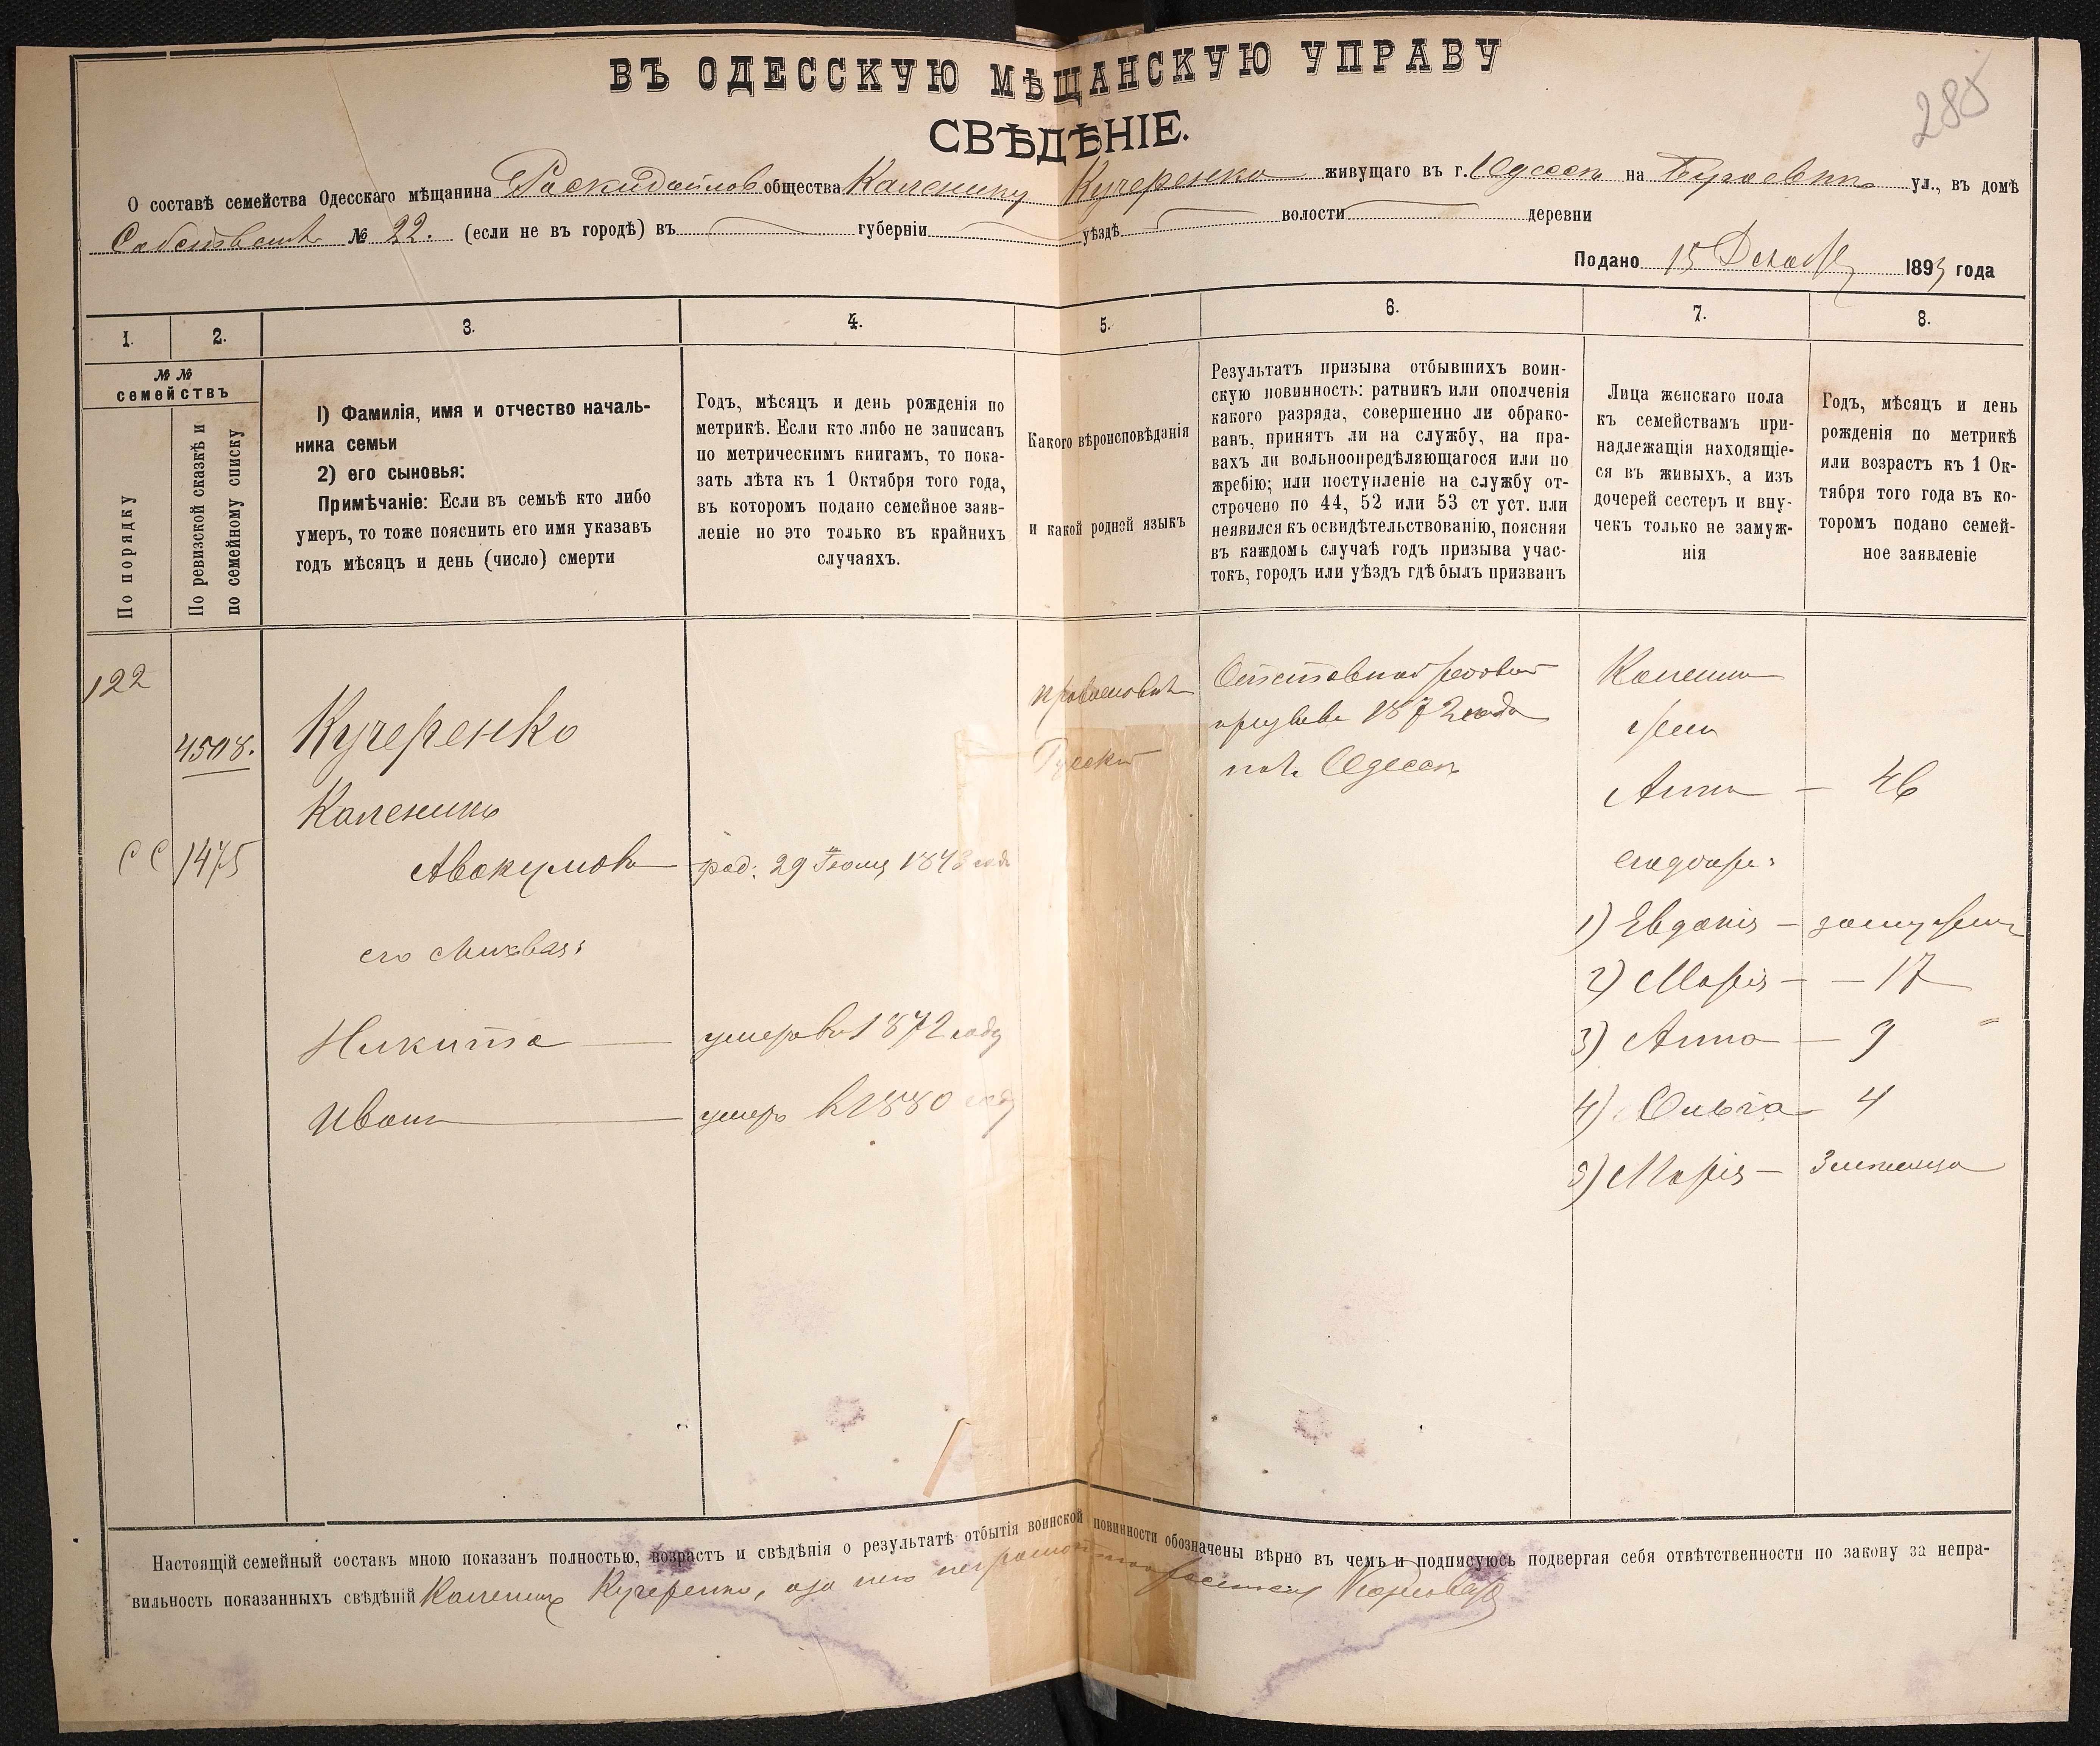 285
ВЪ ОДЕССКУЮ МѢЩАНСКУЮ УПРАВУ
СВѢДѢНІЕ.
О составѣ семейства Одесскаго мѣщанина Раскидайлов общества Каленику Кучеренко живущаго въ г. Одессѣ на Бугаевкѣ ул., въ домѣ
Собствен. № 22. (если не въ городѣ) въ губерніи уѣздѣ волости деревни
Подано 15 Декабр 1893 года
1. 2. 3. 4. 5. 6. 7. 8.
№ №
семействъ
По порядку
По ревизской сказкѣ и
по семейному списку
1) Фамилія, имя и отчество началь-
ника семьи
2) его сыновья:
Примѣчаніе: Если въ семьѣ кто либо
умеръ, то тоже пояснить его имя указавъ
годъ мѣсяцъ и день (число) смерти
Годъ, мѣсяцъ и день рожденія по
метрикѣ. Если кто либо не записанъ
по метрическимъ книгамъ, то пока-
зать лѣта къ 1 Октября того года,
въ которомъ подано семейное заяв-
леніе но это только въ крайнихъ
случаяхъ.
Какого вѣроисповѣданія
и какой родной языкъ
Результатъ призыва отбывшихъ воин-
скую повинность: ратникъ или ополченія
какого разряда, совершенно ли обрако-
ванъ, принятъ ли на службу, на пра-
вахъ ли вольноопредѣляющагося или по
жребію; или поступленіе на службу от-
строчено по 44, 52 или 53 ст уст. или
неявился къ освидѣтельствованію, поясняя
въ каждомь случаѣ годъ призыва учас-
токъ, городъ или уѣздъ гдѣ былъ призванъ
Лица женскаго пола
къ семействамъ при-
надлежащія находящіе-
ся въ живыхъ, а изъ
дочерей сестеръ и вну-
чекъ только не замуж-
нія
Годъ, мѣсяцъ и день
рожденія по метрикѣ
или возрастъ къ 1 Ок-
тября того года въ ко-
торомъ подано семей-
ное заявленіе
122
4508.
СС 1475
Кучеренко
Каленикъ
Авакумовъ род: 29 Іюля 1848 года
его сыновья:
Никита — умеръ въ 1872 году
Иванъ — умеръ в 1880 году
православн
Русскій
Отставной рядовой
призыва 1872 года
по г. Одессѣ
Каленика
жена
Анна — 46
его дочери:
1) Евдокія — замужем
2) Марія — 17
3) Анна — 9
4) Ольга — 4
5) Марія — 3 месяца
Настоящій семейный составъ мною показанъ полностью, возрастъ и свѣдѣнія о результатѣ отбытія воинской повинности обозначены вѣрно въ чемъ и подписуюсь подвергая себя отвѣтственности по закону за непра-
вильность показанныхъ свѣдѣній Каленик Кучеренко, а за него неграмотного